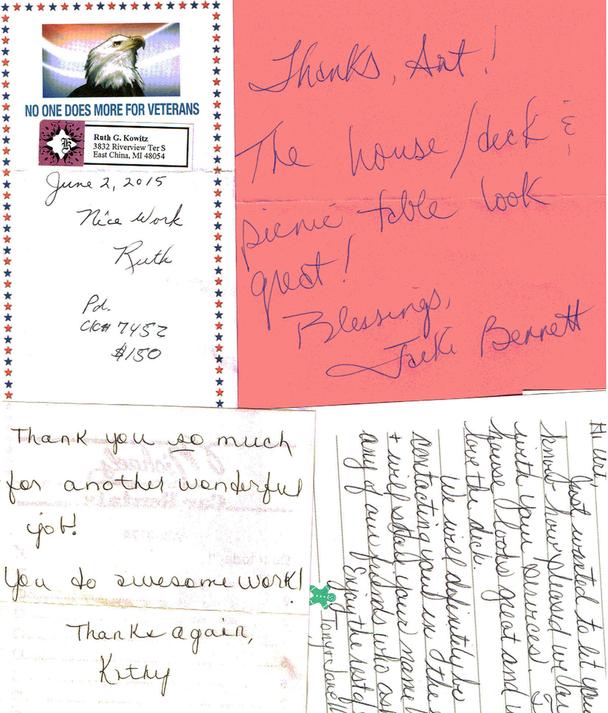 NO ONE DOES MORE FOR VETERANS
Ruth G. Kowitz
3832 Riverview Ter S
East China, MI 48054
June 2, 2015
Nice Work
Ruth
Pd.
CK# 7452
$150
Thanks, Art!
The house/deck &
picnic table look
great!
Blessings,
Jacki Bennett
Thank you so much
for another wonderful
job!
You do awesome work!
Thanks again,
Kathy
Hi Art,
Just wanted to let you
know how pleased we are
with your services.
house looks great and
love the deck.
We will definitely be
contacting you in the
+ will share your name
any of our friends who ask
Enjoy the rest of